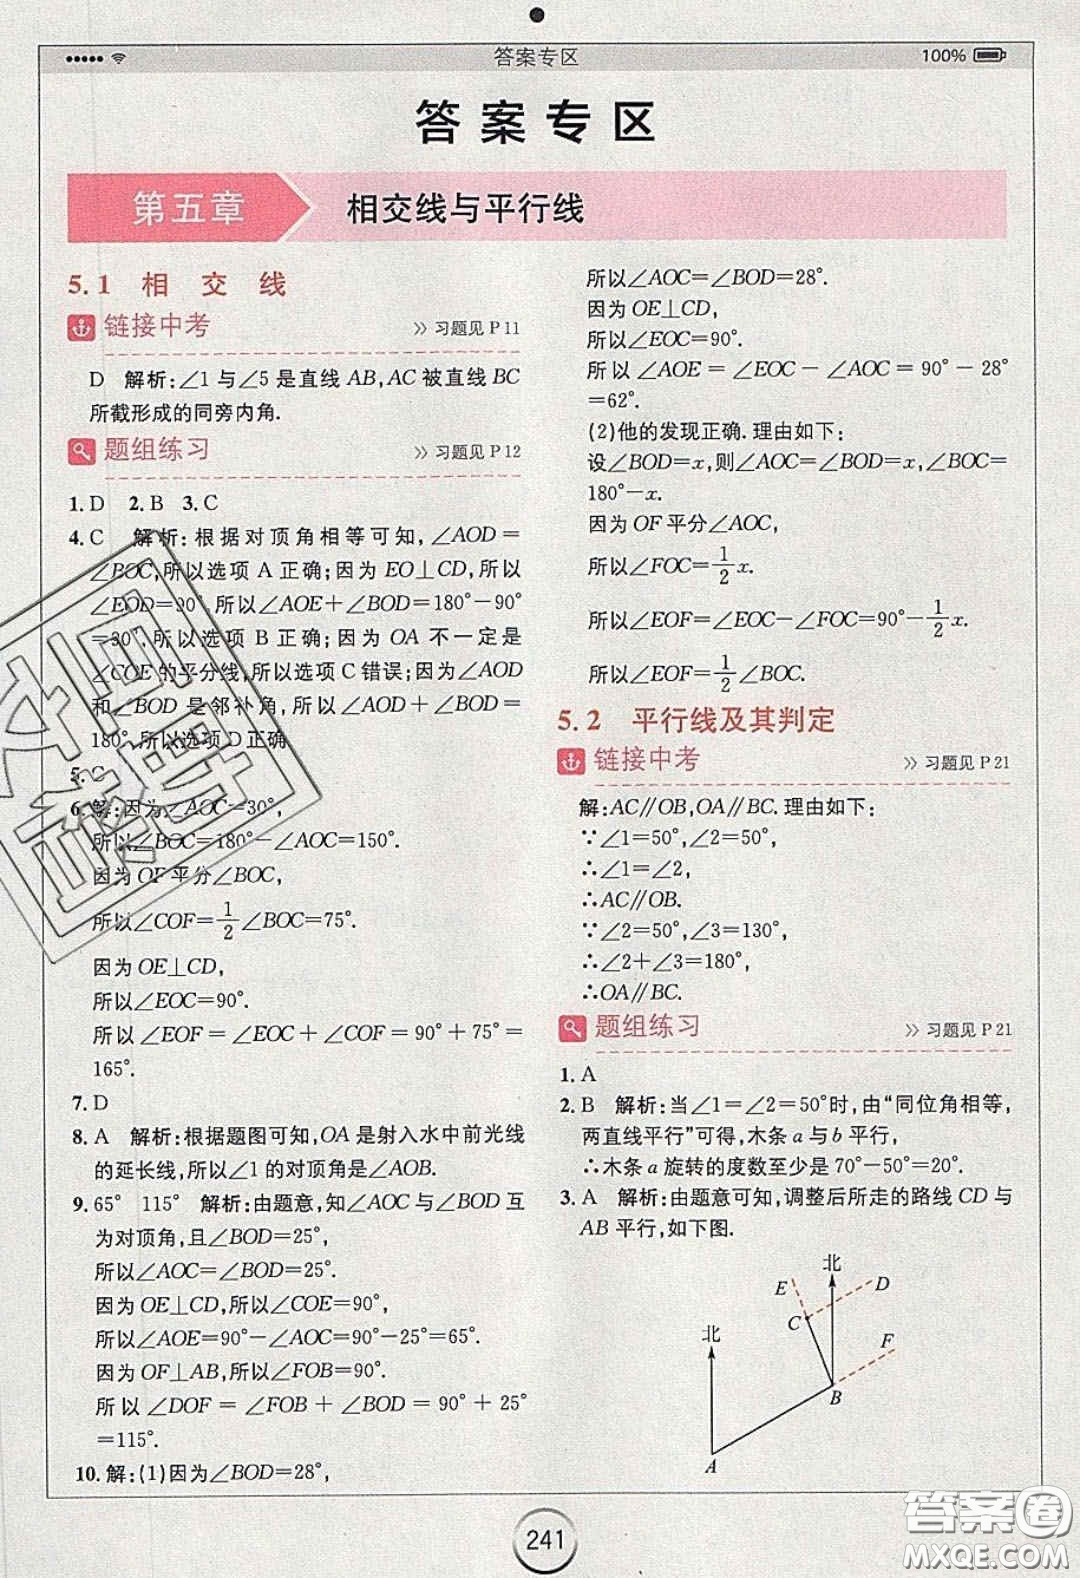 答案专区
100%
答案专区
第五章 相交线与平行线
5.1 相 交 线
链接中考 》习题见 P 11
D 解析:∠1与∠5是直线 AB,AC 被直线 BC
所截形成的同旁内角.
题组练习 》习题见 P 12
1. D 2. B 3. C
4. C 解析:根据对顶角相等可知,∠AOD=
∠BOC,所以选项 A 正确;因为 EO⊥CD,所以
∠EOD=90°,所以∠AOE+∠BOD=180°-90°
=30°,所以选项 B 正确;因为 OA 不一定是
∠COE 的平分线,所以选项 C 错误;因为∠AOD
和∠BOD 是邻补角,所以∠AOD+∠BOD=
180°,所以选项 D 正确
5. C
6. 解:因为∠AOC=30°,
所以∠BOC=180°-∠AOC=150°.
因为 OF 平分∠BOC,
所以∠COF=1/2∠BOC=75°.
因为 OE⊥CD,
所以∠EOC=90°.
所以∠EOF=∠EOC+∠COF=90°+75°=
165°.
7. D
8. A 解析:根据题图可知,OA 是射入水中前光线
的延长线,所以∠1的对顶角是∠AOB.
9. 65° 115° 解析:由题意,知∠AOC 与∠BOD 互
为对顶角,且∠BOD=25°,
所以∠AOC=∠BOD=25°.
因为 OE⊥CD,所以∠COE=90°,
所以∠AOE=90°-∠AOC=90°-25°=65°.
因为 OF⊥AB,所以∠FOB=90°.
所以∠DOF=∠FOB+∠BOD=90°+25°
=115°.
10. 解:(1)因为∠BOD=28°,
所以∠AOC=∠BOD=28°.
因为 OE⊥CD,
所以∠EOC=90°.
所以∠AOE=∠EOC-∠AOC=90°-28°
=62°.
(2)他的发现正确.理由如下:
设∠BOD=x,则∠AOC=∠BOD=x,∠BOC=
180°-x.
因为 OF 平分∠AOC,
所以∠FOC=1/2x.
所以∠EOF=∠EOC-∠FOC=90°-1/2x.
所以∠EOF=1/2∠BOC.
5.2 平行线及其判定
链接中考 》习题见 P 21
解:AC∥OB,OA∥BC.理由如下:
∵∠1=50°,∠2=50°,
∴∠1=∠2,
∴AC∥OB.
∵∠2=50°,∠3=130°,
∴∠2+∠3=180°,
∴OA∥BC.
题组练习 》习题见 P 21
1. A
2. B 解析:当∠1=∠2=50°时,由“同位角相等,
两直线平行”可得,木条 a 与 b 平行,
∴木条 a 旋转的度数至少是70°-50°=20°.
3. A 解析:由题意可知,调整后所走的路线 CD 与
AB 平行,如下图.
北
E
D
C
北
F
B
A
241
答案圈
MXQE.COM